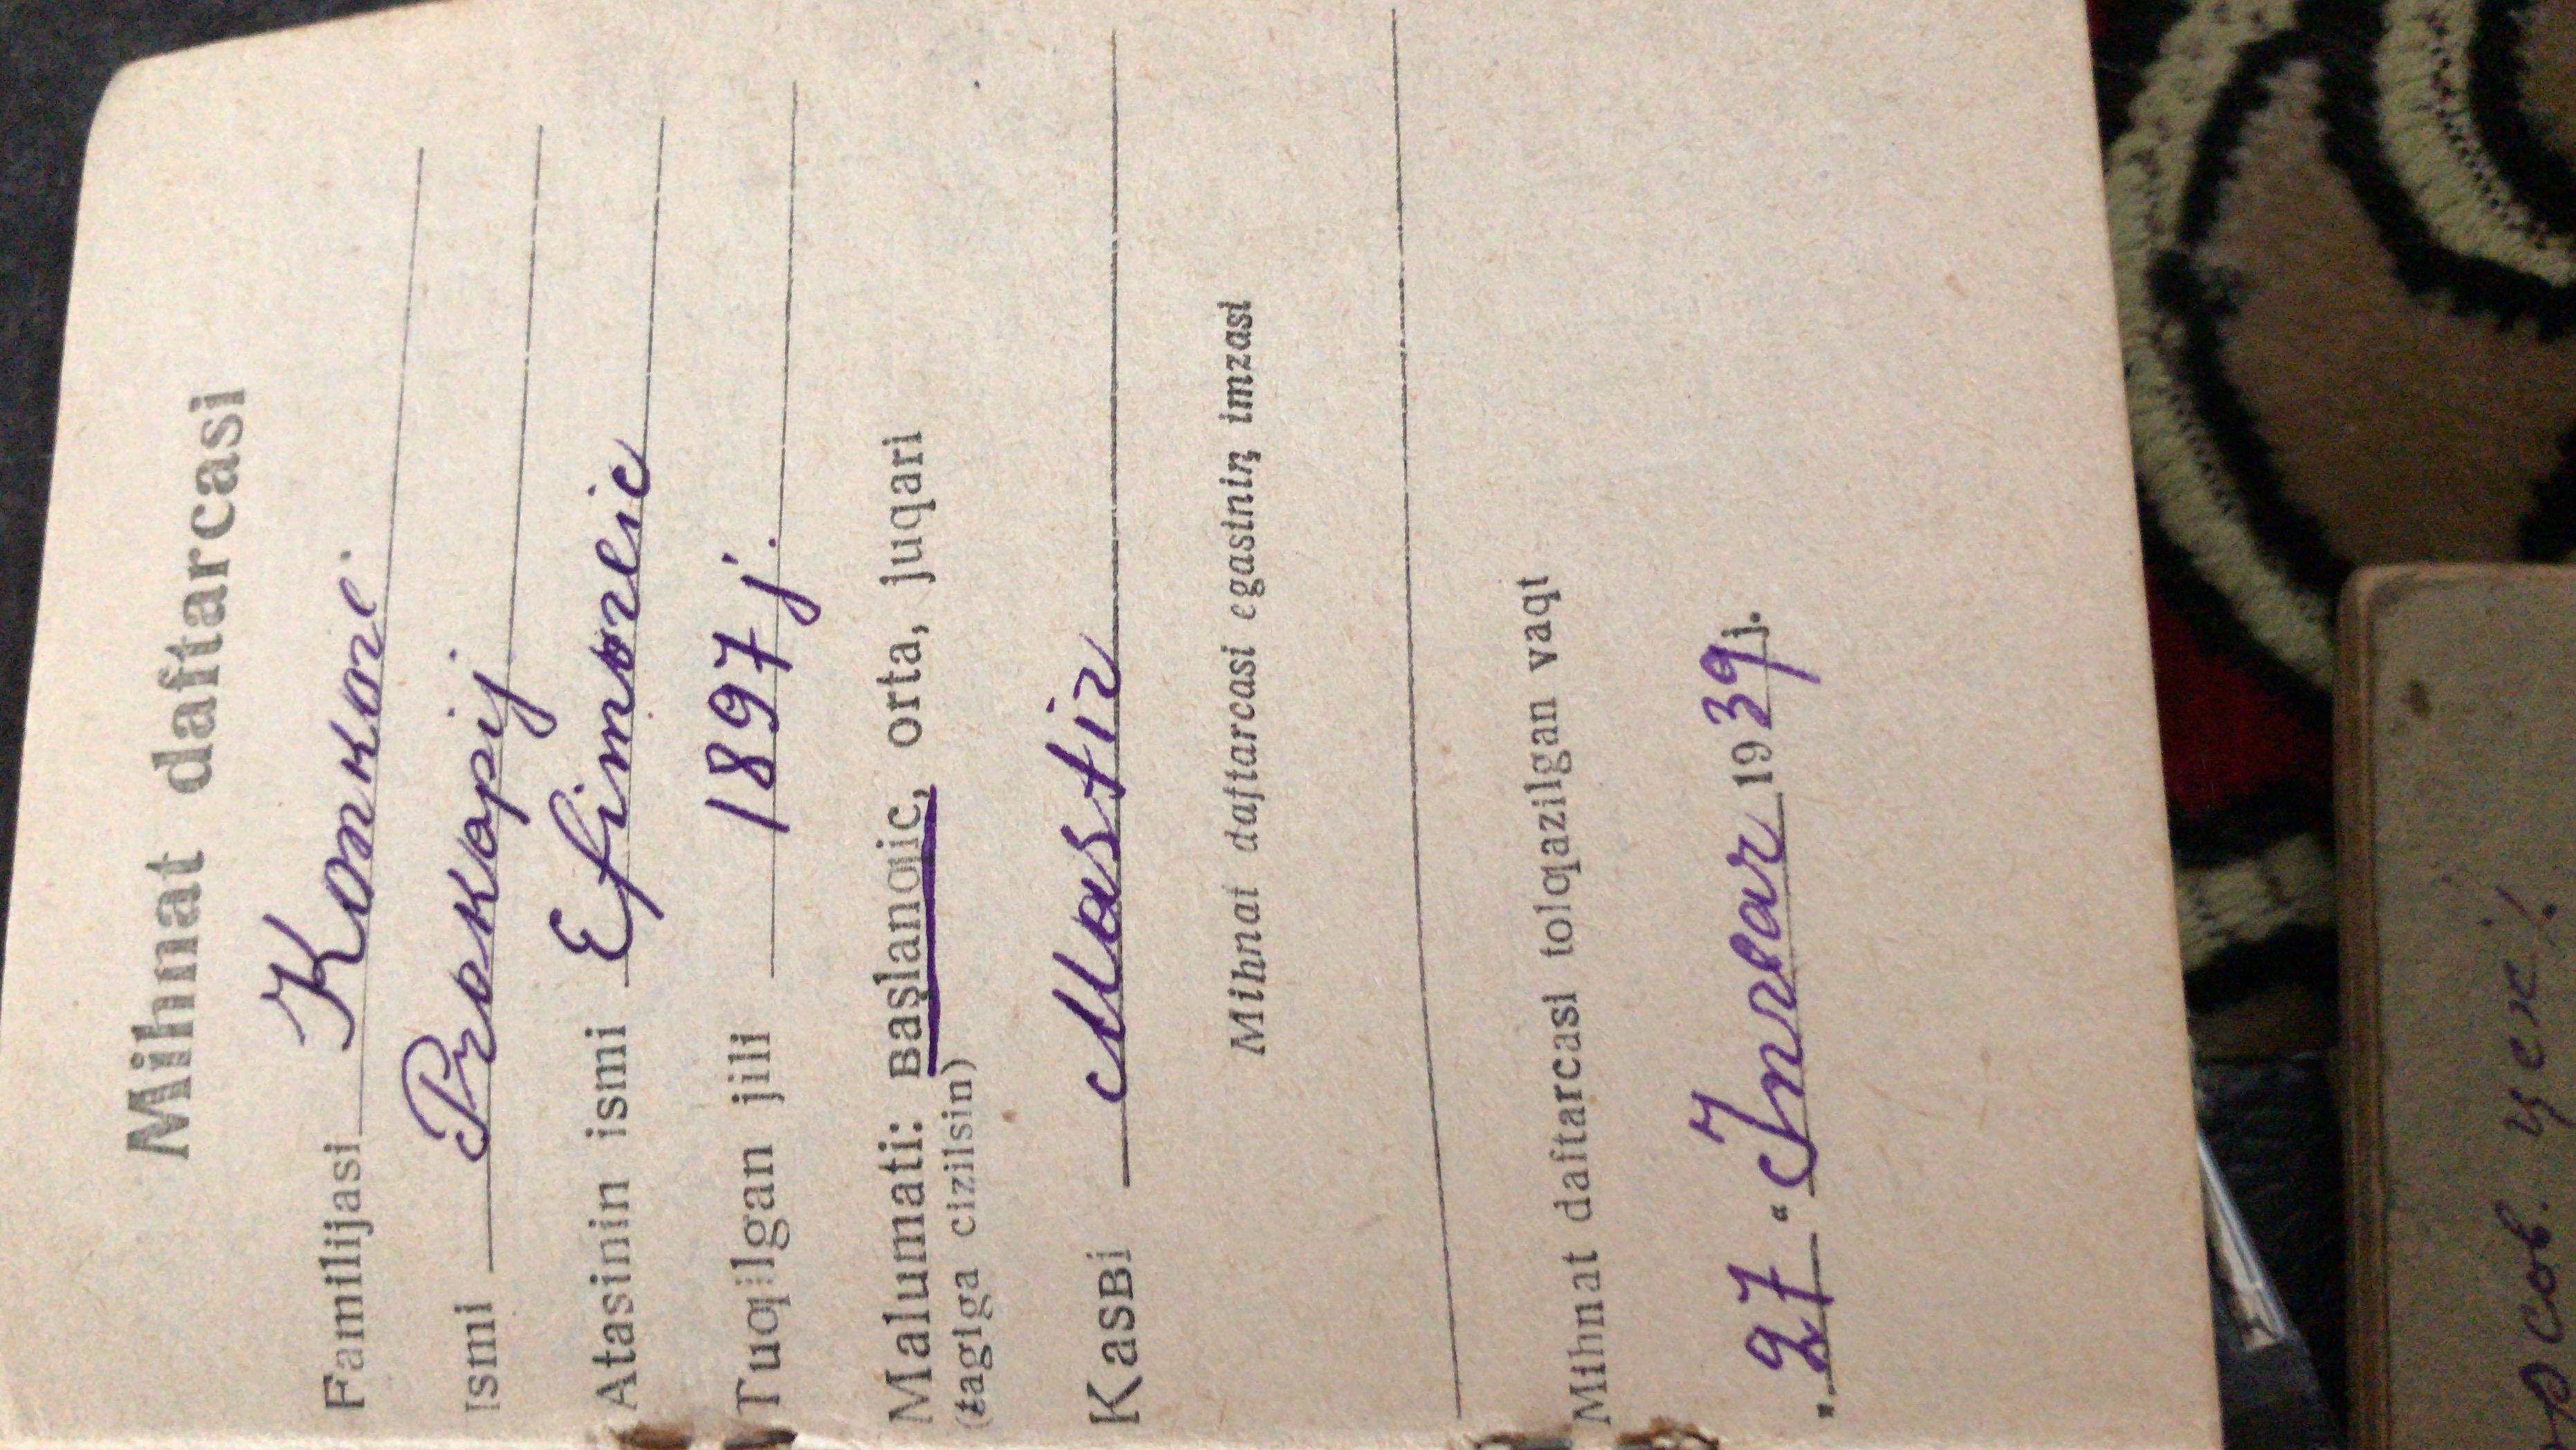 Mihnat daftarcasi
Familijasi Konkov
Ismi Prokopij
Atasinin ismi Efimovic
Tuƣilgan jili 1897 j.
Malumati: ʙaşlanƣic, orta, juqari
(tagiga cizilsin)
Kasʙi Mastir
Mihnat daftarcasi egasiniꞑ imzasi
Mihnat daftarcasi tolƣazilgan vaqt
„27“ Jnvar 1939 j.
цех